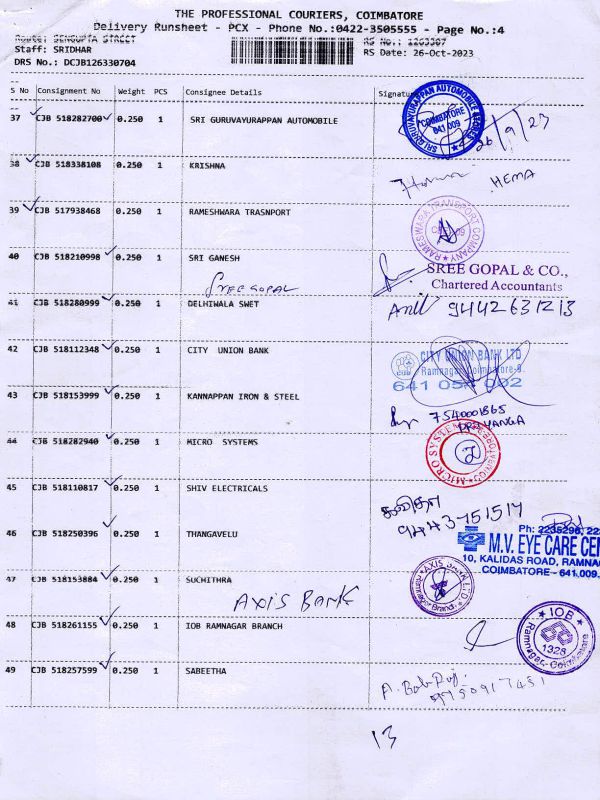 THE PROFESSIONAL COURIERS, COIMBATORE
Delivery Runsheet - PCX - Phone No.:0422-3505555 - Page No.:4
Route: SENGUPTA STREET RS No.: 1263307
Staff: SRIDHAR RS Date: 26-Oct-2023
DRS No.: DCJB126330704
S No Consignment No Weight PCS Consignee Details Signature
37 CJB 518282700 0.250 1 SRI GURUVAYURAPPAN AUTOMOBILE
COIMBATORE
641 009
38 CJB 518338108 0.250 1 KRISHNA HEMA
39 CJB 517938468 0.250 1 RAMESHWARA TRASNPORT
RAMESWARA TRANSPORT COMPANY
40 CJB 518210998 0.250 1 SRI GANESH
SREE GOPAL
SREE GOPAL & CO.,
Chartered Accountants
41 CJB 518280999 0.250 1 DELHIWALA SWET
9442631213
42 CJB 518112348 0.250 1 CITY UNION BANK
CITY UNION BANK LTD
Ramnagar, Coimbatore-9.
641 054 002
43 CJB 518153999 0.250 1 KANNAPPAN IRON & STEEL
PRIYANGA
44 CJB 518282940 0.250 1 MICRO SYSTEMS
MICRO SYSTEMS
COIMBATORE
45 CJB 518110817 0.250 1 SHIV ELECTRICALS
கவிதா
9443751517
46 CJB 518250396 0.250 1 THANGAVELU
Ph: 2235296, 22
M.V. EYE CARE CEN
10, KALIDAS ROAD, RAMNAG
COIMBATORE - 641 009.
47 CJB 518153884 0.250 1 SUCHITHRA
AXIS BANK
AXIS BANK LTD
Ramnagar Branch
48 CJB 518261155 0.250 1 IOB RAMNAGAR BRANCH
IOB
1328
Ramnagar, Coimbatore
49 CJB 518257599 0.250 1 SABEETHA
9750917451
13